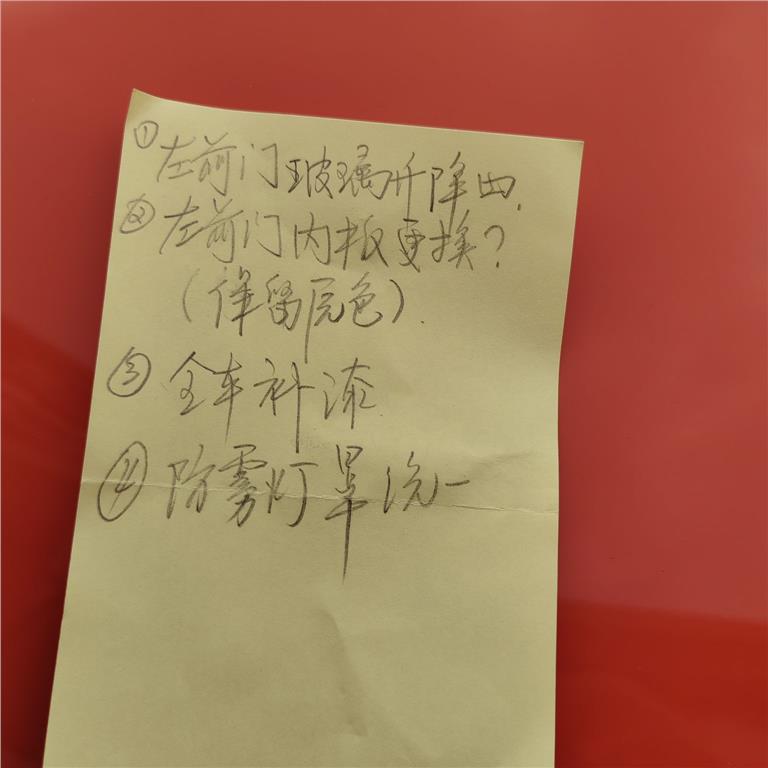 ① 左前门玻璃升降
② 左前门内板更换?
(保留原色).
③ 全车补漆
④ 防雾灯罩